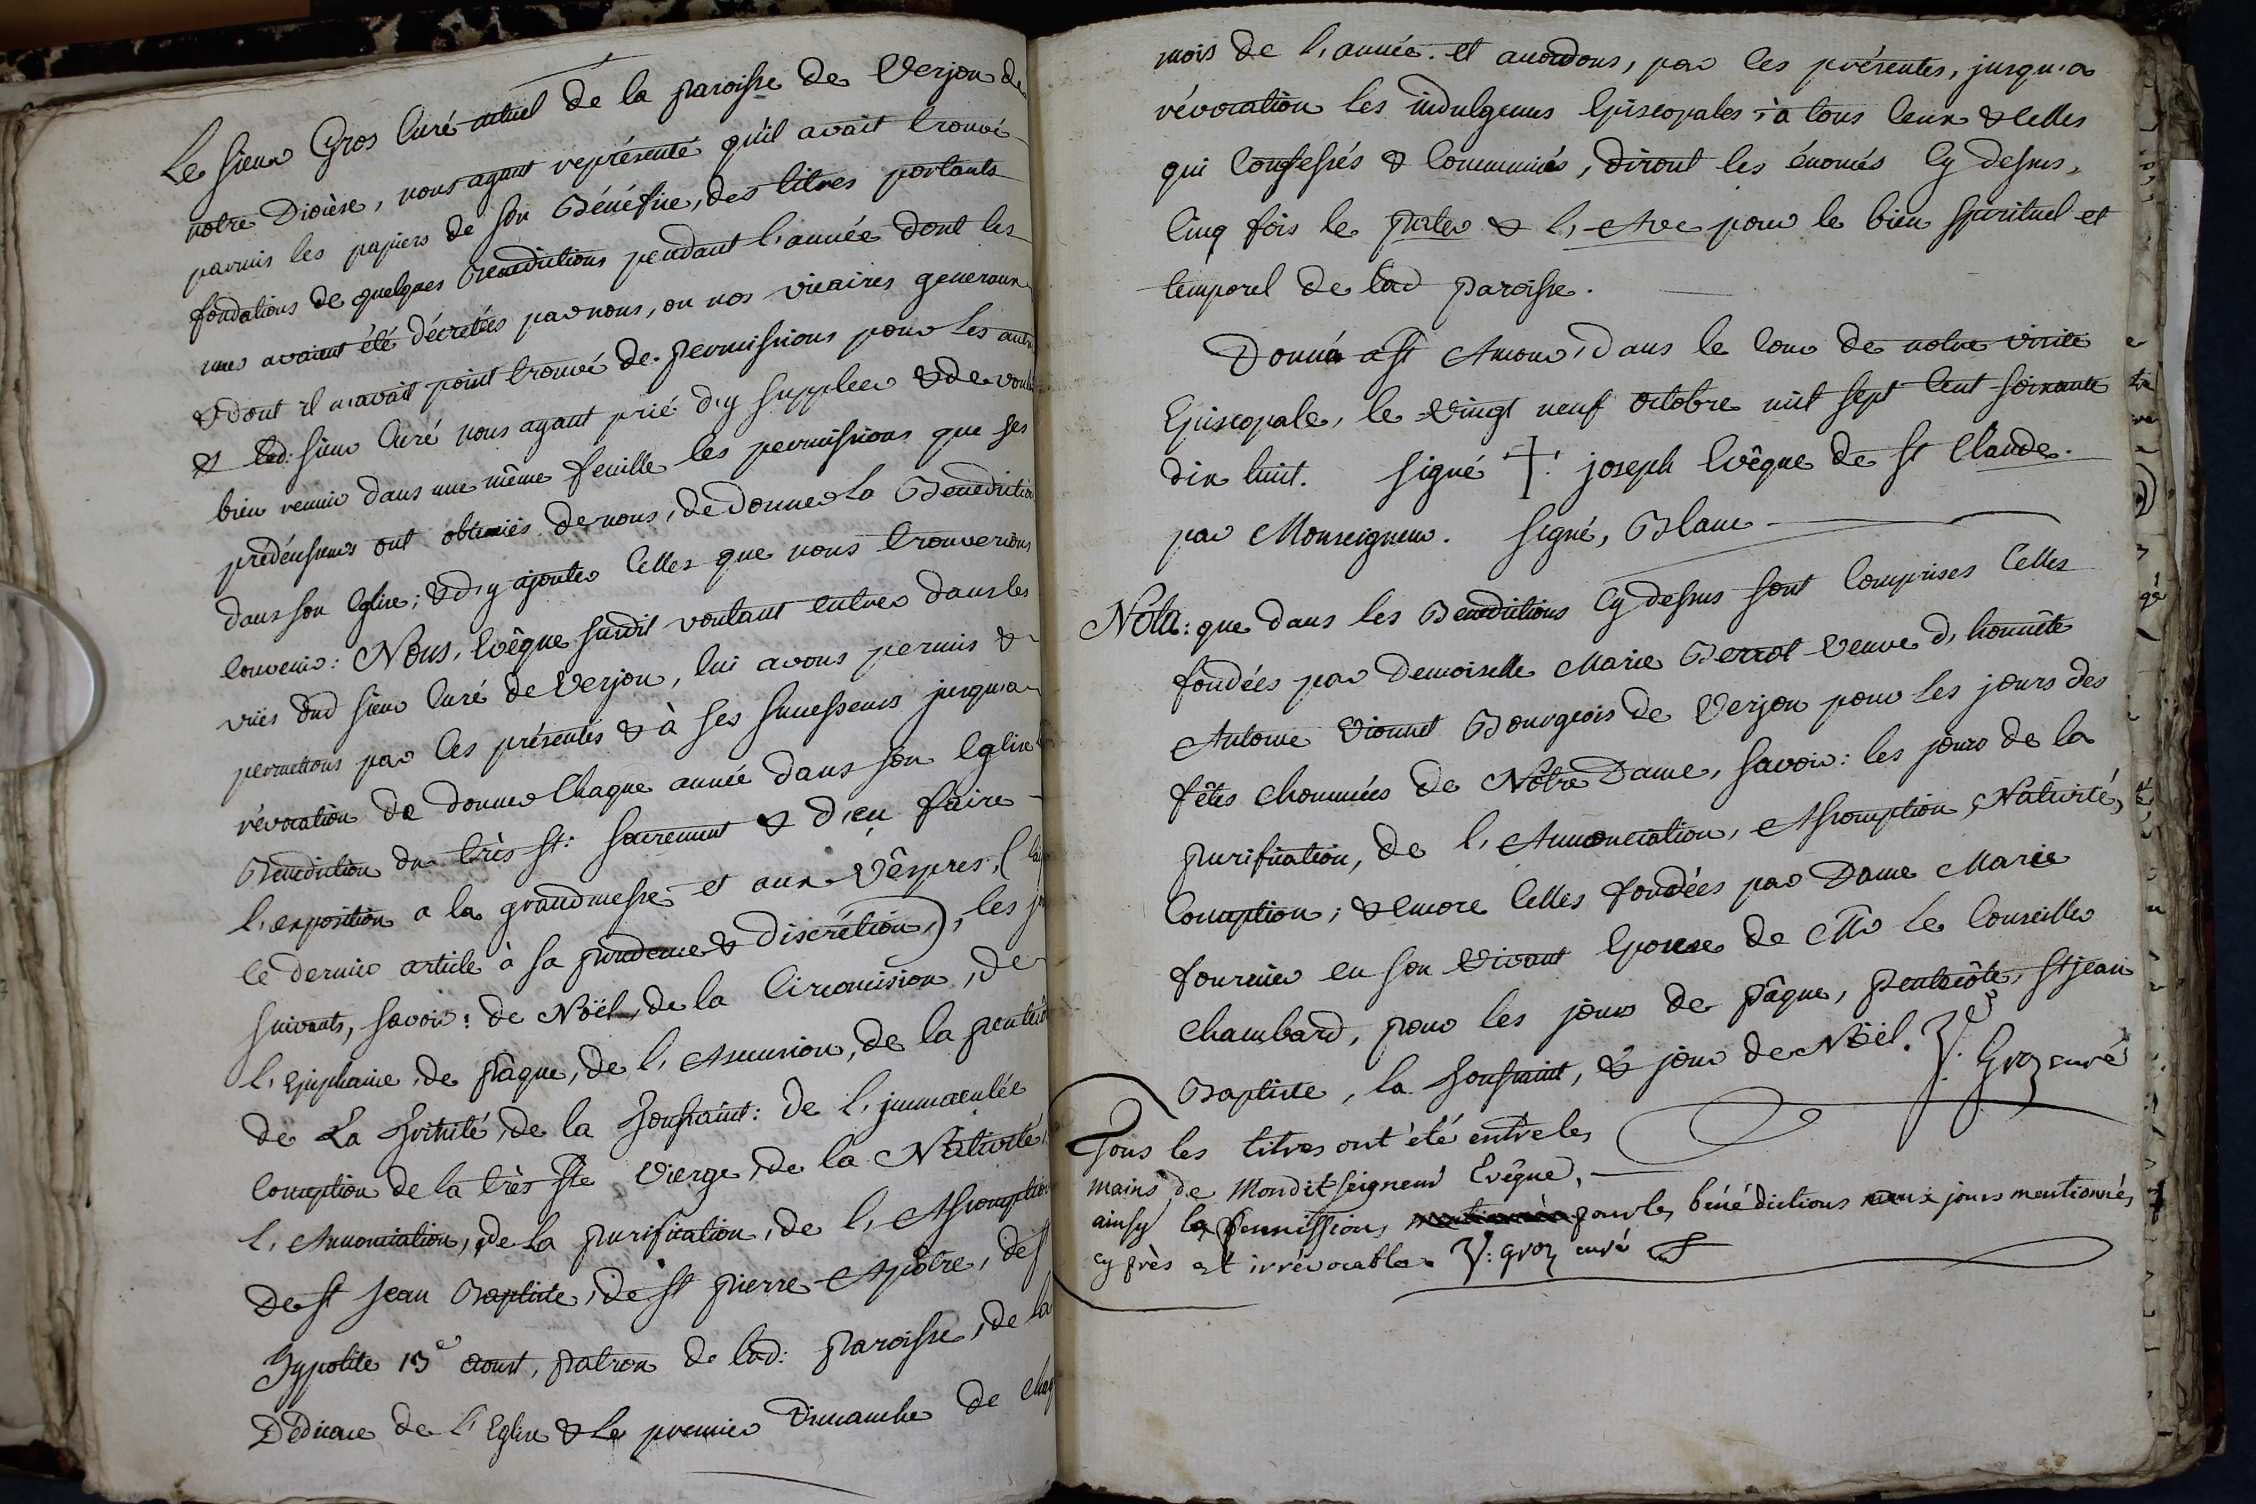 Le sieur Gros Curé actuel de la paroisse de Verjon de
notre Diocèse, nous ayant représenté qu'il avait trouvé
parmis les papiers de son Bénéfice, des titres portants
fondations de quelques Benedictions pendant l'année dont les
unes avaient été décrétées par nous, ou nos vicaires generaux
& dont il n'avait point trouvé de permissions pour les autr
& led: sieur Curé nous ayant prié d'y suppleer & de voul
bien reunir dans une même feuille les permissions que ses
prédécesseurs ont obtenues de nous, de donner la Benediction
dans son Eglise; & d'y ajouter Celles que nous trouverions
Convenir: Nous, Evêque susdit voulant entrer dans les
vües dud sieur Curé de Verjon, lui avons permis &
permettons par Ces présentes & à ses successeurs jusqu'a
révocation de donner Chaque année dans son Eglise
Benediction du très st: sacrement & d'en faire
l'exposition a la grandmesse et aux Vêpres, (
ce dernier article à sa prudence & discrétion), les
suivants, savoir: de Noël, de la Circoncision, de
l'Epiphanie, de Pâque, de l'Ascension, de la pentecô
de La Trinité, de la Toussaint: de l'immaculée
Conception de la très Ste Vierge, de la Nativité
l'Annonciation, de La purification, de l'Assomption
de st Jean Baptiste, de st pierre Apôtre, de st
Hypolite 13e aoust, patron de lad: Paroisse, de la
Dédicace de l'Eglise & Le premier Dimanche de chaq
mois de l'année. et accordons, par Ces présentes, jusqu'a
révocation les indulgences Episcopales, à tous Ceux & Celles
qui Confessés & Communiés, diront les énoncés Cy dessus,
Cinq fois le pater & l'Ave pour le bien spirituel et
temporel de lad paroisse.
Donné a St Amour, dans le Cour de notre visite
Episcopale, le vingt neuf octobre mil sept Cent soixante
dix huit. signé + joseph Evêque de St Claude.
par Monseigneur. signé, Blanc
Nota: que dans les Benedictions Cy dessus sont Comprises Celles
fondées par Demoiselle Marie Perrot veuve d'honnête
Antoine Vionnet Bourgeois de Verjon pour les jours des
fêtes chommées de Nôtre Dame, savoir: les jours de la
purification, de l'Annonciation, Assomption, Nativité,
Conception; & encore Celles fondées par Dame Marie
fournier en son vivant Epouse de Mr Le Conseiller
Chambard, pour les jours de Pâque, Pentecôte, St jean
Baptiste, la Toussaint, & jour de Noël. J: Groz curé
Tous les titres ont été entre les
mains de Mondit seigneur Evêque,
ainsy la permission pour les bénédictions aux jours mentionnés
cy près est irrévocable. J: groz curé